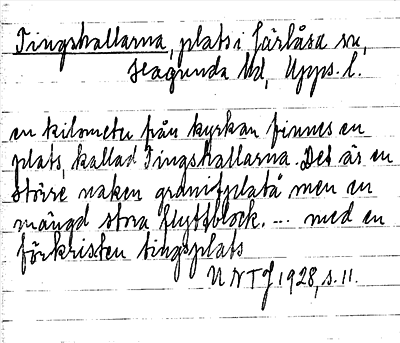 Tingshallarna, plats i Järlåsa sn,
Hagunda hd, Upps. l.
en kilometer från kyrkan finnes en
plats, kallad Tingshallarna. Det är en
större naken granitplatå men en
mängd stora flyttblock. --- med en
förkristen tingsplats
UNTJ 1928, s. 11.